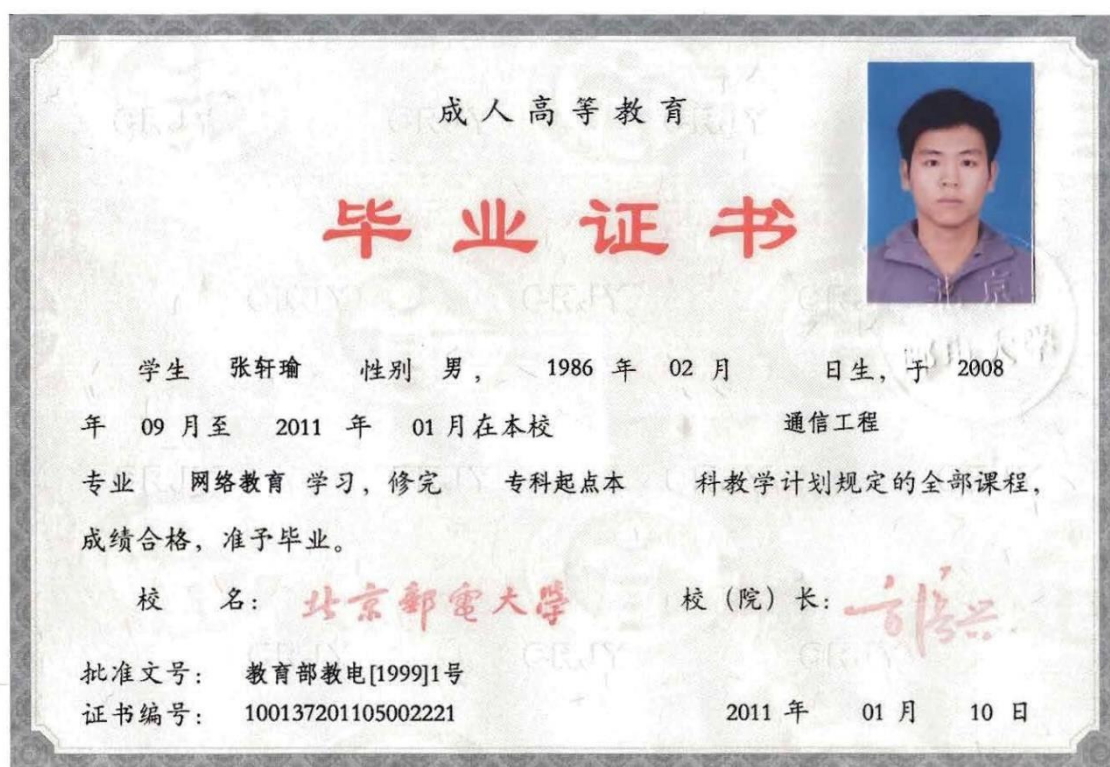 成人高等教育
毕业证书
学生 张轩瑜 性别 男, 1986 年 02 月 日生, 于 2008
年 09 月至 2011 年 01 月在本校 通信工程
专业 网络教育 学习, 修完 专科起点本 科教学计划规定的全部课程,
成绩合格, 准予毕业。
校 名: 北京郵電大學 校 (院) 长:
批准文号: 教育部教电[1999]1号
证书编号: 100137201105002221 2011 年 01 月 10 日